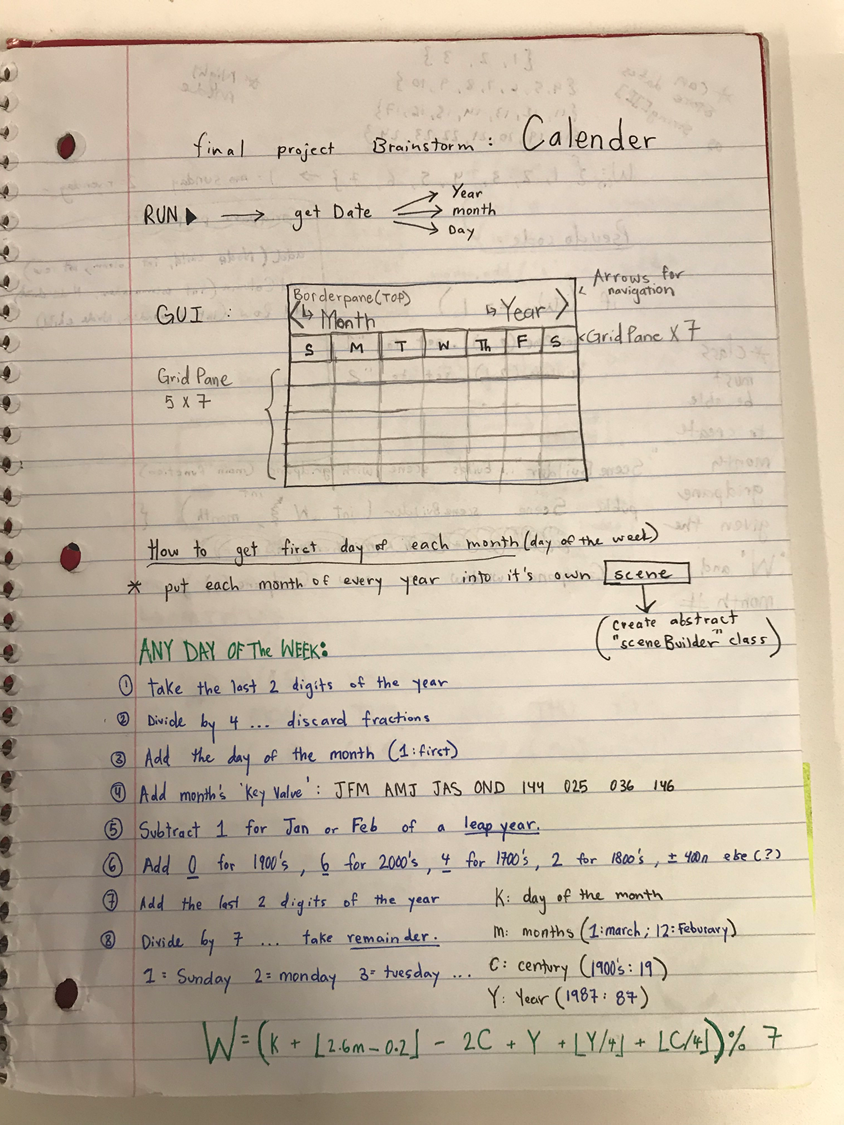 final project Brainstorm: Calender
RUN ▶ → get Date → Year
→ month
→ Day
GUI :
Borderpane (TOP)
< ↳ Month ↳ Year >
< Arrows for navigation
S M T W Th F S
< Grid Pane X 7
Grid Pane
5 x 7
How to get first day of each month (day of the week)
* put each month of every year into it's own scene
(create abstract
"sceneBuilder" class)
ANY DAY OF The WEEK:
① take the last 2 digits of the year
② Divide by 4 ... discard fractions
③ Add the day of the month (1:first)
④ Add month's 'Key Value' : JFM AMJ JAS OND 144 025 036 146
⑤ Subtract 1 for Jan or Feb of a leap year.
⑥ Add 0 for 1900's, 6 for 2000's, 4 for 1700's, 2 for 1800's, ± 400n else (?)
⑦ Add the last 2 digits of the year
⑧ Divide by 7 ... take remainder.
1 = Sunday 2 = monday 3 = tuesday ...
K: day of the month
m: months (1:march; 12: Feburary)
C: century (1900's: 19)
Y: Year (1987: 87)
W = (K + ⌊2.6m - 0.2⌋ - 2C + Y + ⌊Y/4⌋ + ⌊C/4⌋) % 7